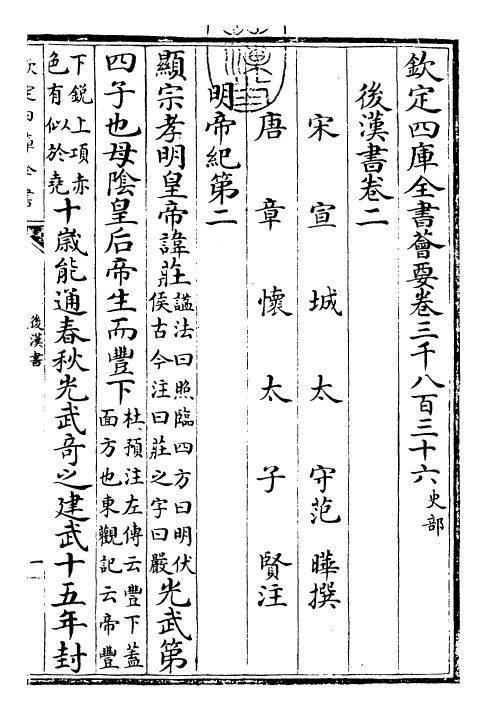 欽定四庫全書薈要卷三千八百三十六史部
後漢書卷二
宋宣城太守范曄撰
唐章懷太子賢注
明帝紀第二
顯宗孝明皇帝諱莊諡法曰照臨四方曰明伏侯古今注曰莊之字曰嚴光武第
四子也母陰皇后帝生而豐下杜預注左傳云豐下蓋面方也東觀記云帝豐
下鋭上項赤色有似於堯十嵗能通春秋光武奇之建武十五年封
欽定四庫全書
後漢書
一